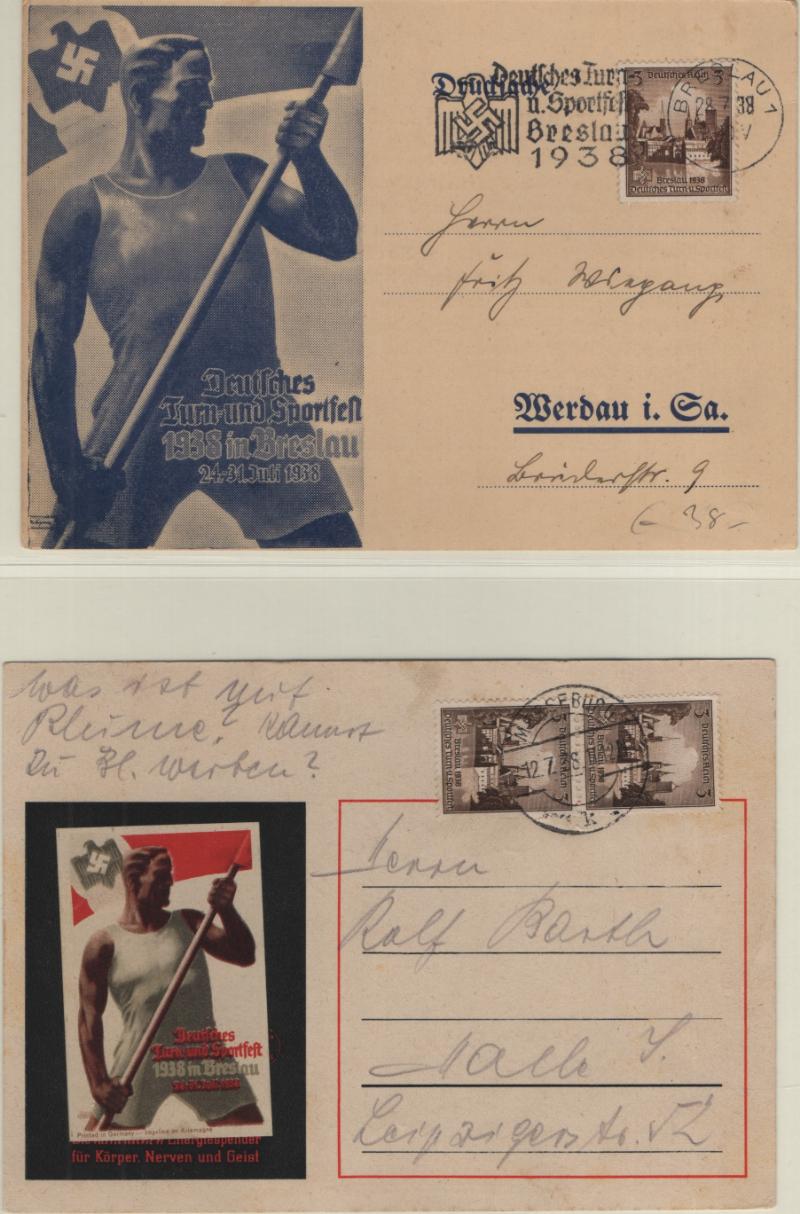 Drucksache
Deutsches Turn-
u. Sportfest
Breslau
1938
BRESLAU 1
28.7.38
3 Deutsches Reich 3
Breslau 1938
Deutsches Turn-u. Sportfest
Herrn
Fritz Wiegang
Werdau i. Sa.
Brüderstr. 9
38-
Deutsches
Turn-und Sportfest
1938 in Breslau
24.-31. Juli 1938
Was ist mit
Blume? Kannst
Du Bl. werben?
MAGDEBURG
12.7.38
k
3 Deutsches Reich 3
Breslau 1938
Deutsches Turn-u. Sportfest
3 Deutsches Reich 3
Breslau 1938
Deutsches Turn-u. Sportfest
Herrn
Rolf Barth
Halle S.
Leipzigerstr. 52
Deutsches
Turn-und Sportfest
1938 in Breslau
24.-31. Juli 1938
Printed in Germany - Imprimé en Allemagne
Energiespender
für Körper, Nerven und Geist